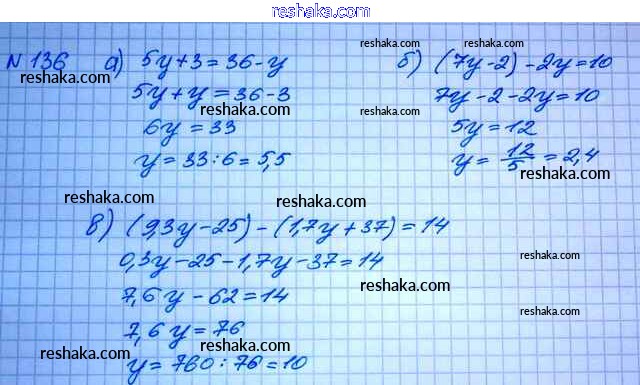 reshaka.com
N 136 а) 5y+3=36-y
5y+y=36-3
6y=33
y=33:6=5,5
б) (7y-2)-2y=10
7y-2-2y=10
5y=12
y=12/5=2,4
в) (9,3y-25)-(1,7y+37)=14
0,3y-25-1,7y-37=14
7,6y-62=14
7,6y=76
y=760:76=10
reshaka.com
reshaka.com
reshaka.com
reshaka.com
reshaka.com
reshaka.com
reshaka.com
reshaka.com
reshaka.com
reshaka.com
reshaka.com
reshaka.com
reshaka.com